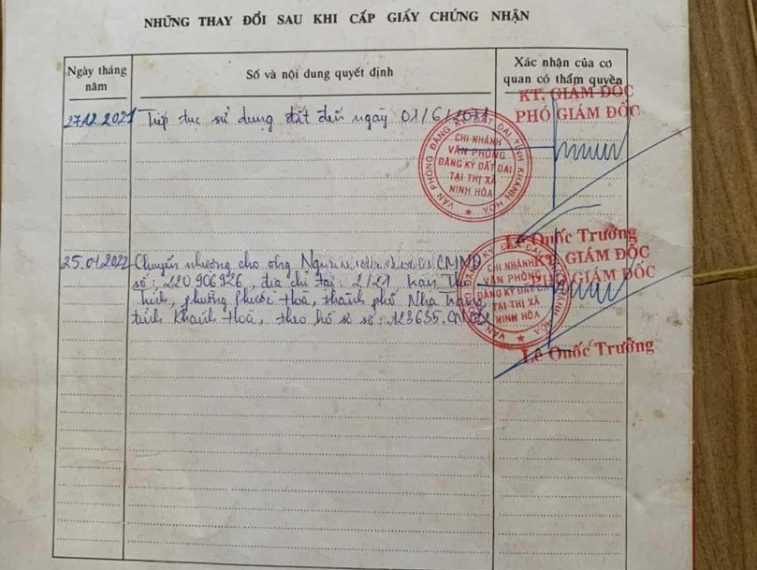 NHỮNG THAY ĐỔI SAU KHI CẤP GIẤY CHỨNG NHẬN
Ngày tháng năm
Số và nội dung quyết định
Xác nhận của cơ quan có thẩm quyền
27.12.2021 Tiếp tục sử dụng đất đến ngày 01/6/
KT. GIÁM ĐỐC
PHÓ GIÁM ĐỐC
VĂN PHÒNG ĐĂNG KÝ ĐẤT ĐAI TỈNH KHÁNH HÒA
CHI NHÁNH
VĂN PHÒNG
ĐĂNG KÝ ĐẤT ĐAI
TẠI THỊ XÃ
NINH HÒA
Lê Quốc Trưởng
25.01.2022 Chuyển nhượng cho ông CMND
số: 220906926, địa chỉ tại: 2/21
phường Phước Hoà, thành phố Nha Trang
tỉnh Khánh Hoà, theo hồ sơ số: 123635.
KT. GIÁM ĐỐC
PHÓ GIÁM ĐỐC
CHI NHÁNH
VĂN PHÒNG
ĐĂNG KÝ ĐẤT ĐAI
TẠI THỊ XÃ
NINH HÒA
Lê Quốc Trưởng